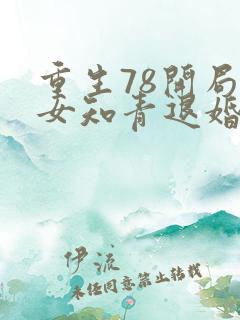 重生78开局
女知青退婚
伊流
未经同意禁止转载